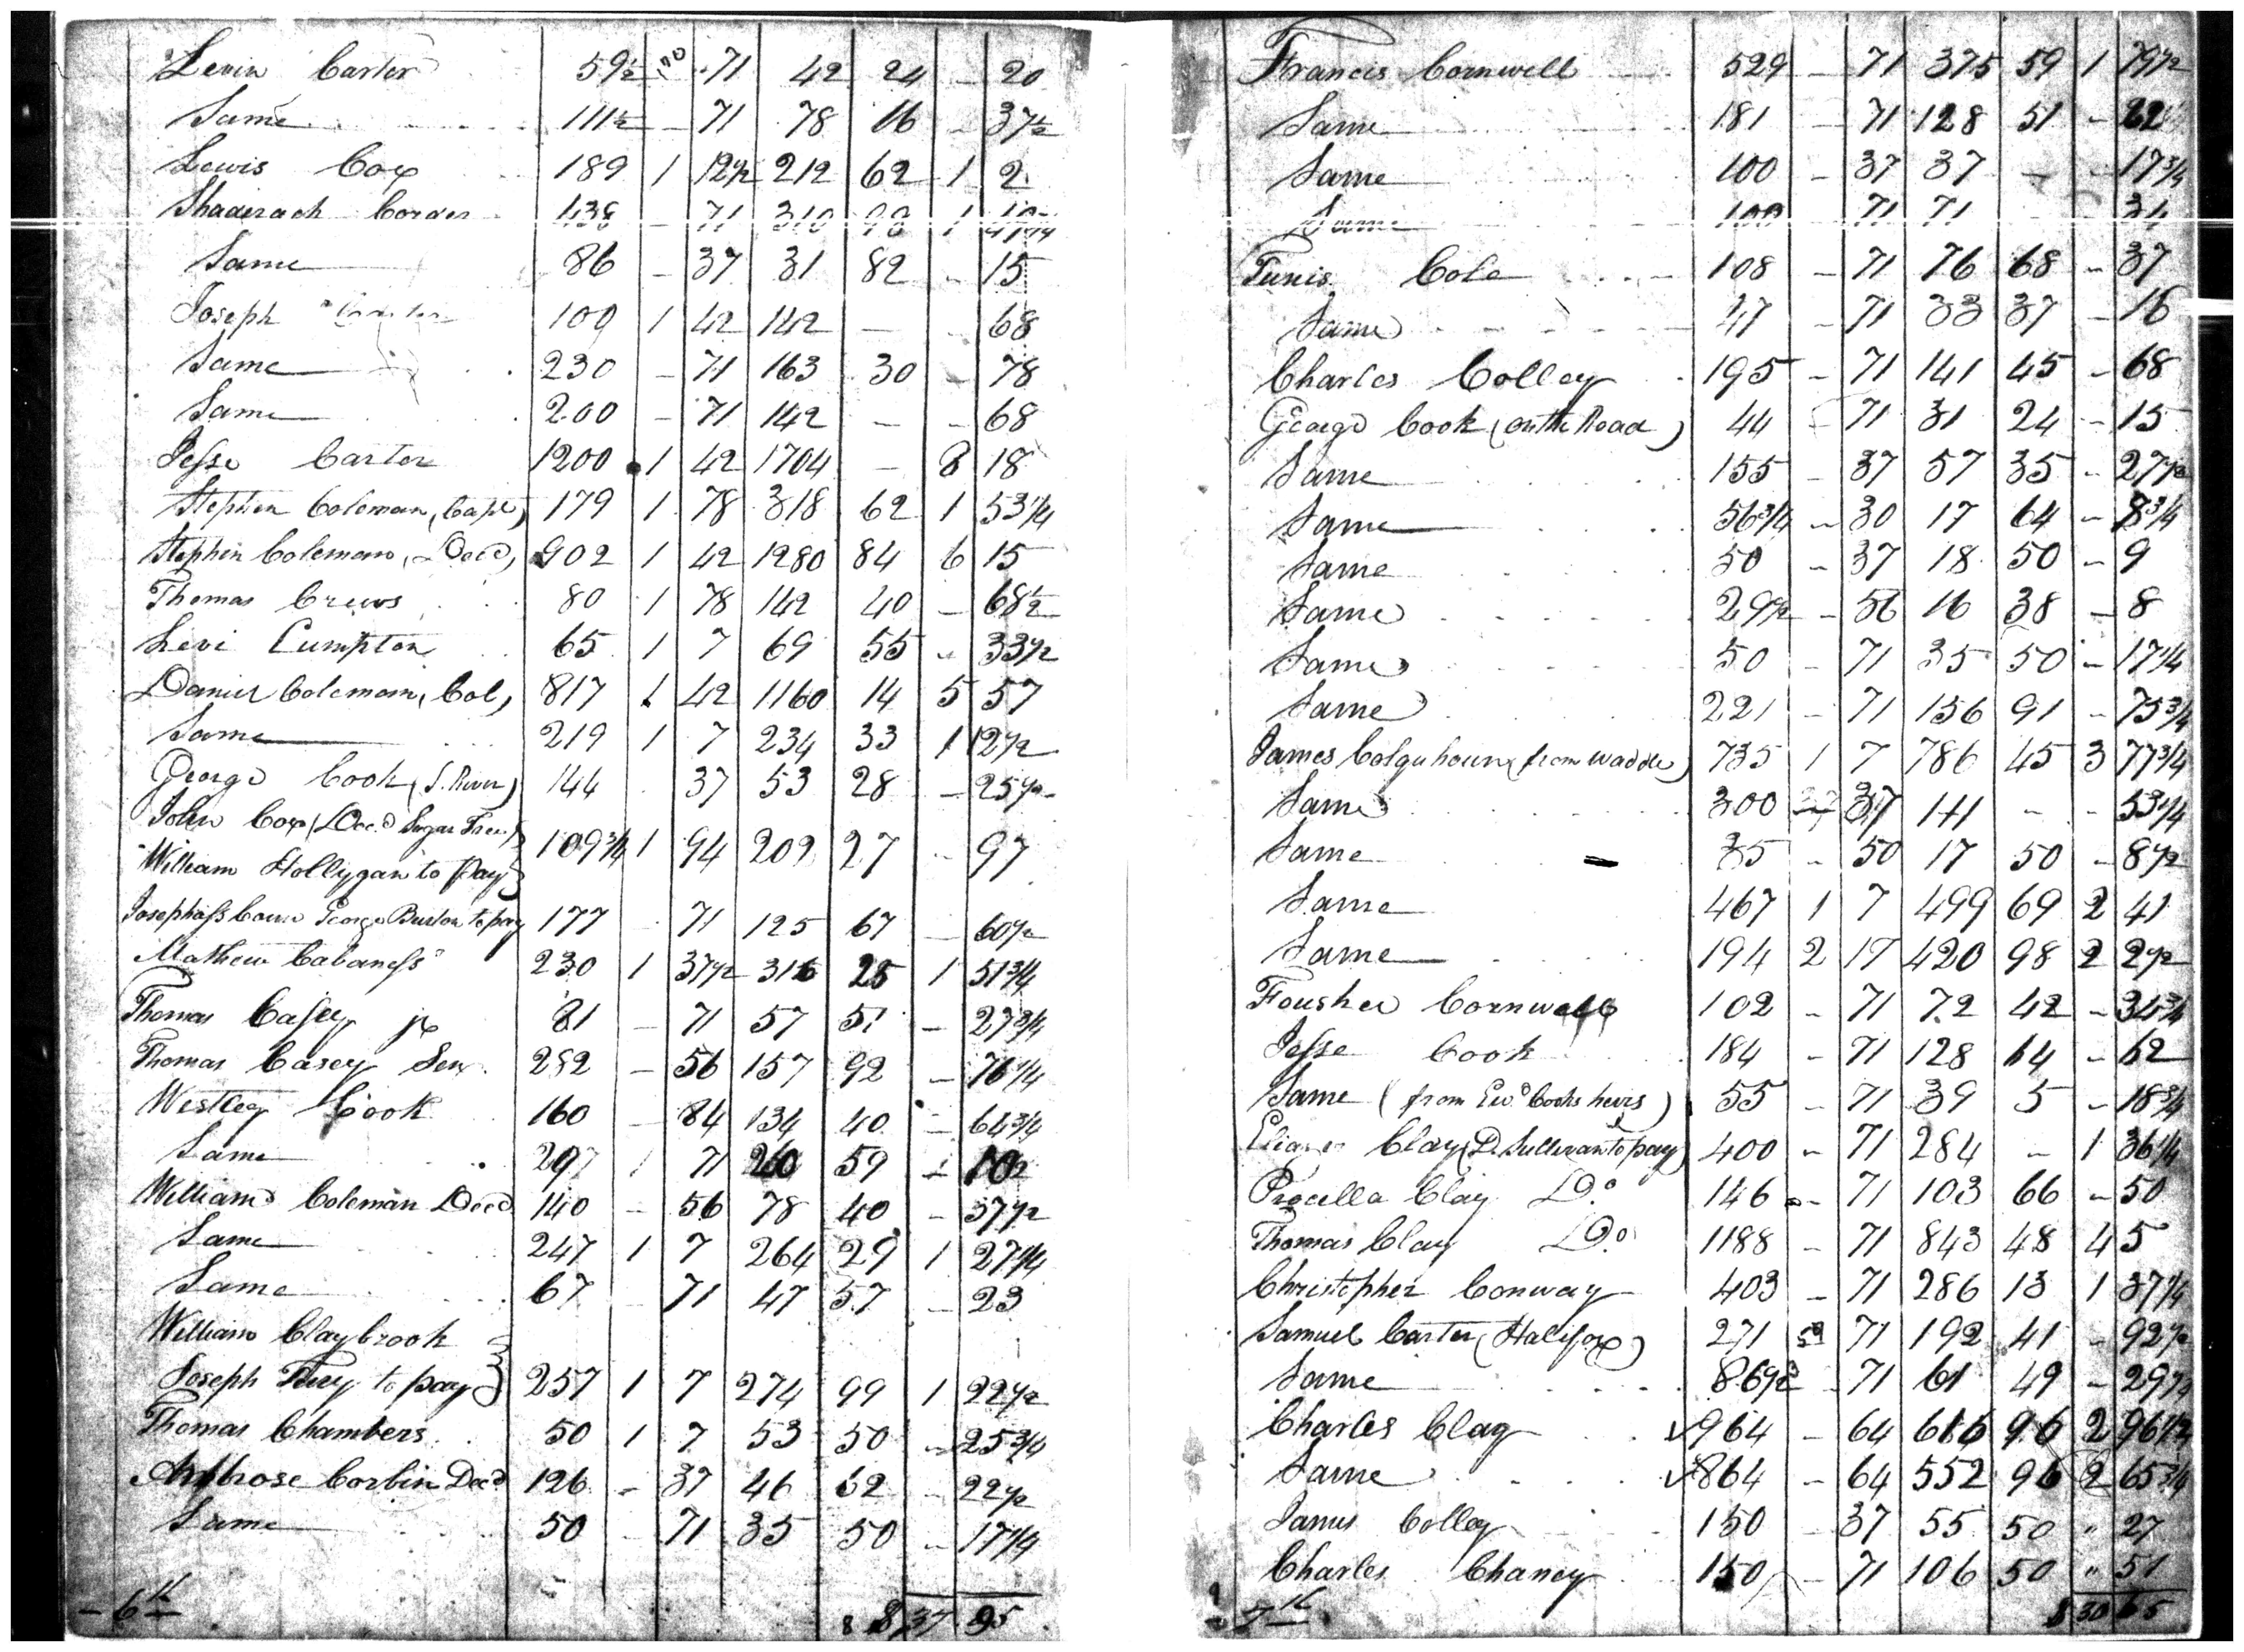 Levin Carter 59½ 70 71 42 24 – 20
Same 111½ – 71 78 16 – 37½
Lewis Cox 189 1 12½ 212 62 1 2
Shaderach Corder 438 – 71 310 98 1
Same 86 – 37 31 82 – 15
Joseph 100 1 42 142 – – 68
Same 230 – 71 163 30 – 78
Same 200 – 71 142 – – 68
Jesse Carter 1200 1 42 1704 – 8 18
Stephen Coleman, Capt) 179 1 78 318 62 1 53¼
Stephen Coleman, Decd, 902 1 42 1280 84 6 15
Thomas Crews 80 1 78 142 40 – 68½
Levi Cumpton 65 1 7 69 55 – 33½
Daniel Coleman, Col, 817 1 42 1160 14 5 57
Same 219 1 7 234 33 1 12½
George Cook (S. River) 144 37 53 28 – 25½
John Cox (Decd Sugar Tree)
William Hollygan to pay 109¾ 1 94 202 27 – 97
George Burton to pay 177 – 71 125 67 – 60½
Mathew Cabaness 230 1 37½ 316 25 1 51¾
Thomas Casey jr 81 – 71 57 51 – 27¾
Thomas Casey Sen. 282 – 56 157 92 – 76¼
Westley Cook 160 – 84 134 40 – 64¾
Same 297 71 210 59
William Coleman Decd 140 – 56 78 40 – 37½
Same 247 1 7 264 29 1 27¼
Same 67 – 71 47 57 – 23
William Claybrook
Joseph to pay 257 1 7 274 99 1 22½
Thomas Chambers 50 1 7 53 50 – 25¾
Ambrose Corbin Decd 126 – 37 46 62 – 22½
Same 50 – 71 35 50 – 17¼
– 6th 8 37 95
Francis Cornwell 529 – 71 375 59 1 79½
Same 181 – 71 128 51 – 62
Same 100 – 37 37 – – 17¾
Same 100 71 71 – – 34
Tunis Cole 108 – 71 76 68 – 37
Same 47 – 71 33 37 – 16
Charles Colley 195 – 71 141 45 – 68
George Cook (on the Road) 44 71 31 24 – 15
Same 155 – 37 57 35 – 27½
Same 56¾ – 30 17 64 – 8¾
Same 50 – 37 18 50 – 9
Same 29½ – 56 16 38 – 8
Same 50 – 71 35 50 – 17¼
Same 221 – 71 156 91 – 75¾
James Colquhoun (from Waddle) 735 1 7 786 45 3 77¾
Same 300 37 111 – – 53¼
Same 35 – 50 17 50 – 8½
Same 467 1 7 499 69 2 41
Same 194 2 17 420 98 2 2½
Fousher Cornwell 102 – 71 72 42 – 34¾
Jesse Cook 184 – 71 128 64 – 62
Same (from Cooks heirs) 55 – 71 39 5 – 18¾
Clay (D. Sullivan to pay) 400 – 71 284 – 1 36¼
Precilla Clay Do 146 – 71 103 66 – 50
Thomas Clay Do 1188 – 71 843 48 4 5
Christopher Conway 403 – 71 286 13 1 37¼
Samuel Carter (Halifax) 271 71 192 41 – 92½
Same 86½ – 71 61 49 – 29½
Charles Clay 964 – 64 616 96 2 96½
Same 864 – 64 552 96 2 65¾
James Colley 150 – 37 55 50 " 27
Charles Chaney 150 – 71 106 50 " 51
7th 8 30 65